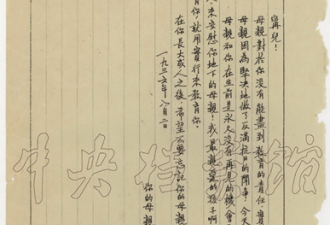 寧兒！
母親對於你沒有能盡到教育的責任，實
母親因為堅決地做了反滿抗日的鬥爭，今天
母親和你在生前是永久沒有再見的機會
來安慰你地下的母親！我最親愛的孩子啊
育你，就用實行來教育你。
在你長大成人之後，希望不要忘記你的母親
一九三六年八月二日
你的母親
中央檔案館